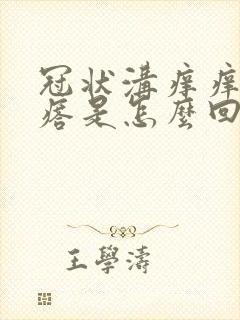 冠状溝痒痒
痞是怎麼回
王學濤